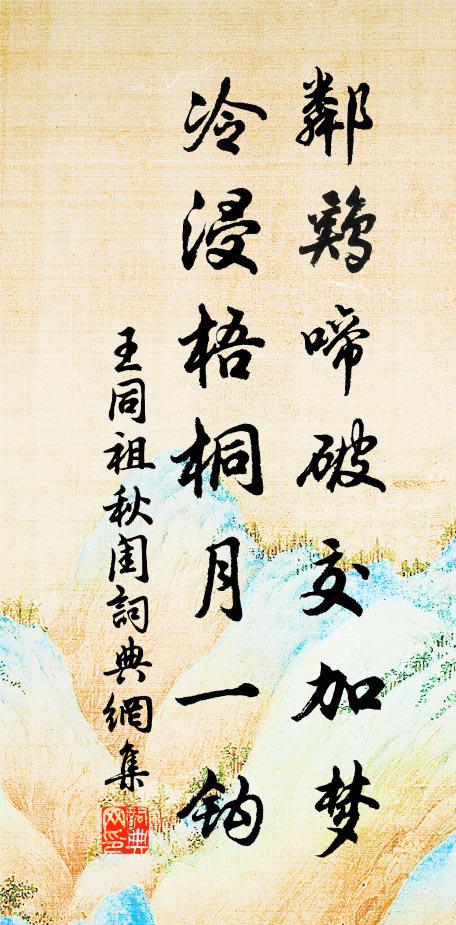 鄰鷄啼破交加梦
冷浸梧桐月一鈎
王同祖秋闺詞典網集
詞典网印